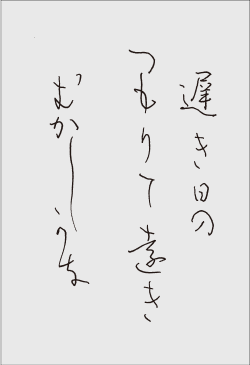 遅き日の
つもりて遠き
むかしかな